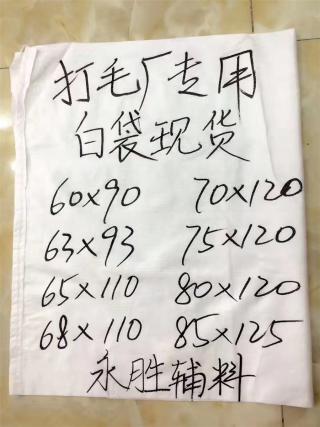 打毛厂专用
白袋现货
60×90 70×120
63×93 75×120
65×110 80×120
68×110 85×125
永胜辅料